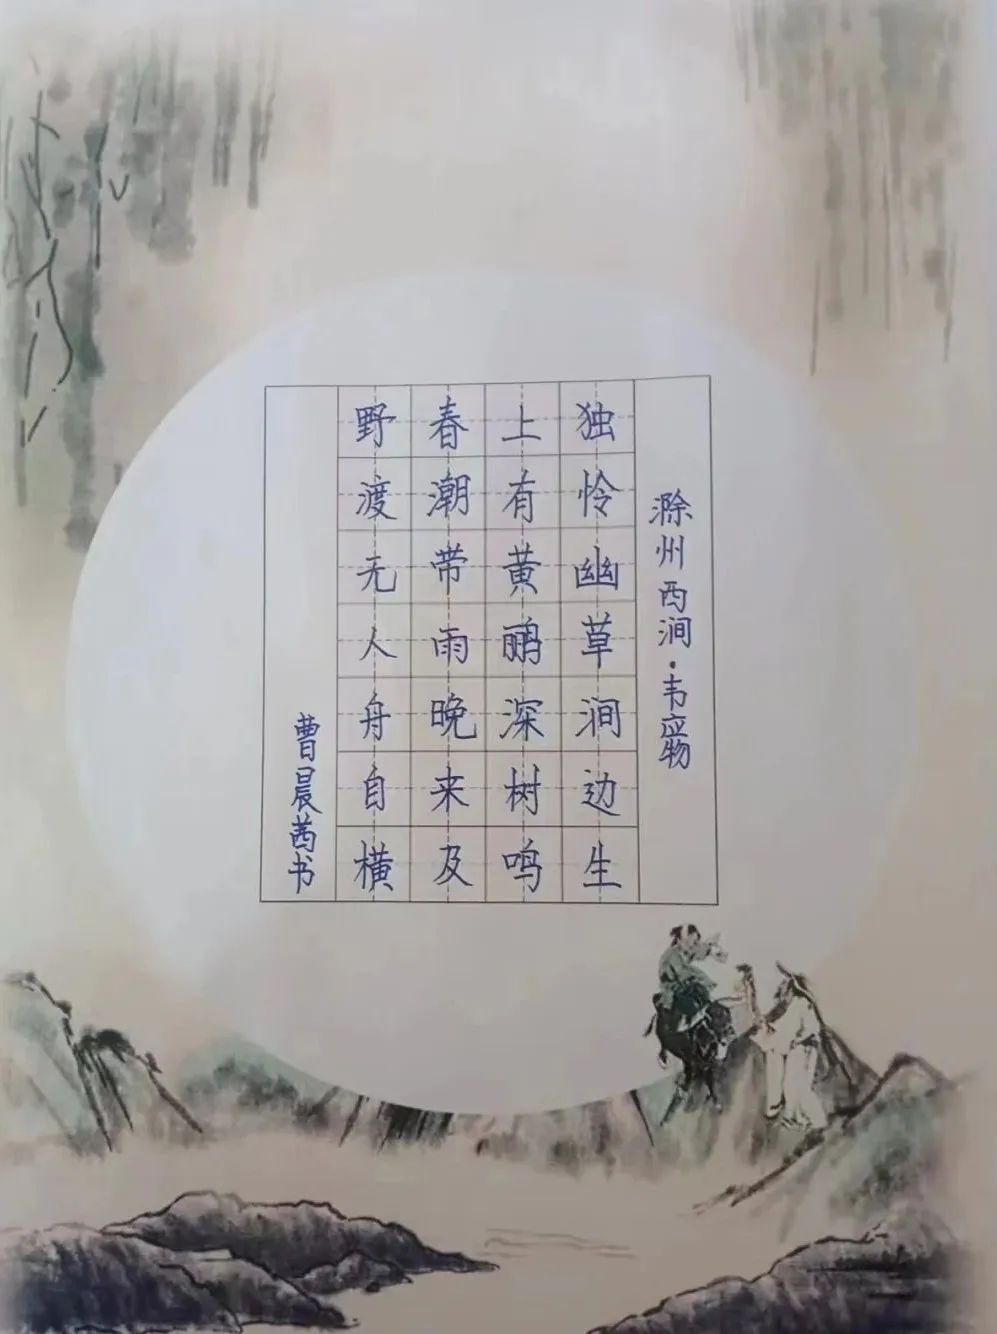 滁州西涧·韦应物
独怜幽草涧边生
上有黄鹂深树鸣
春潮带雨晚来及
野渡无人舟自横
曹晨茜书